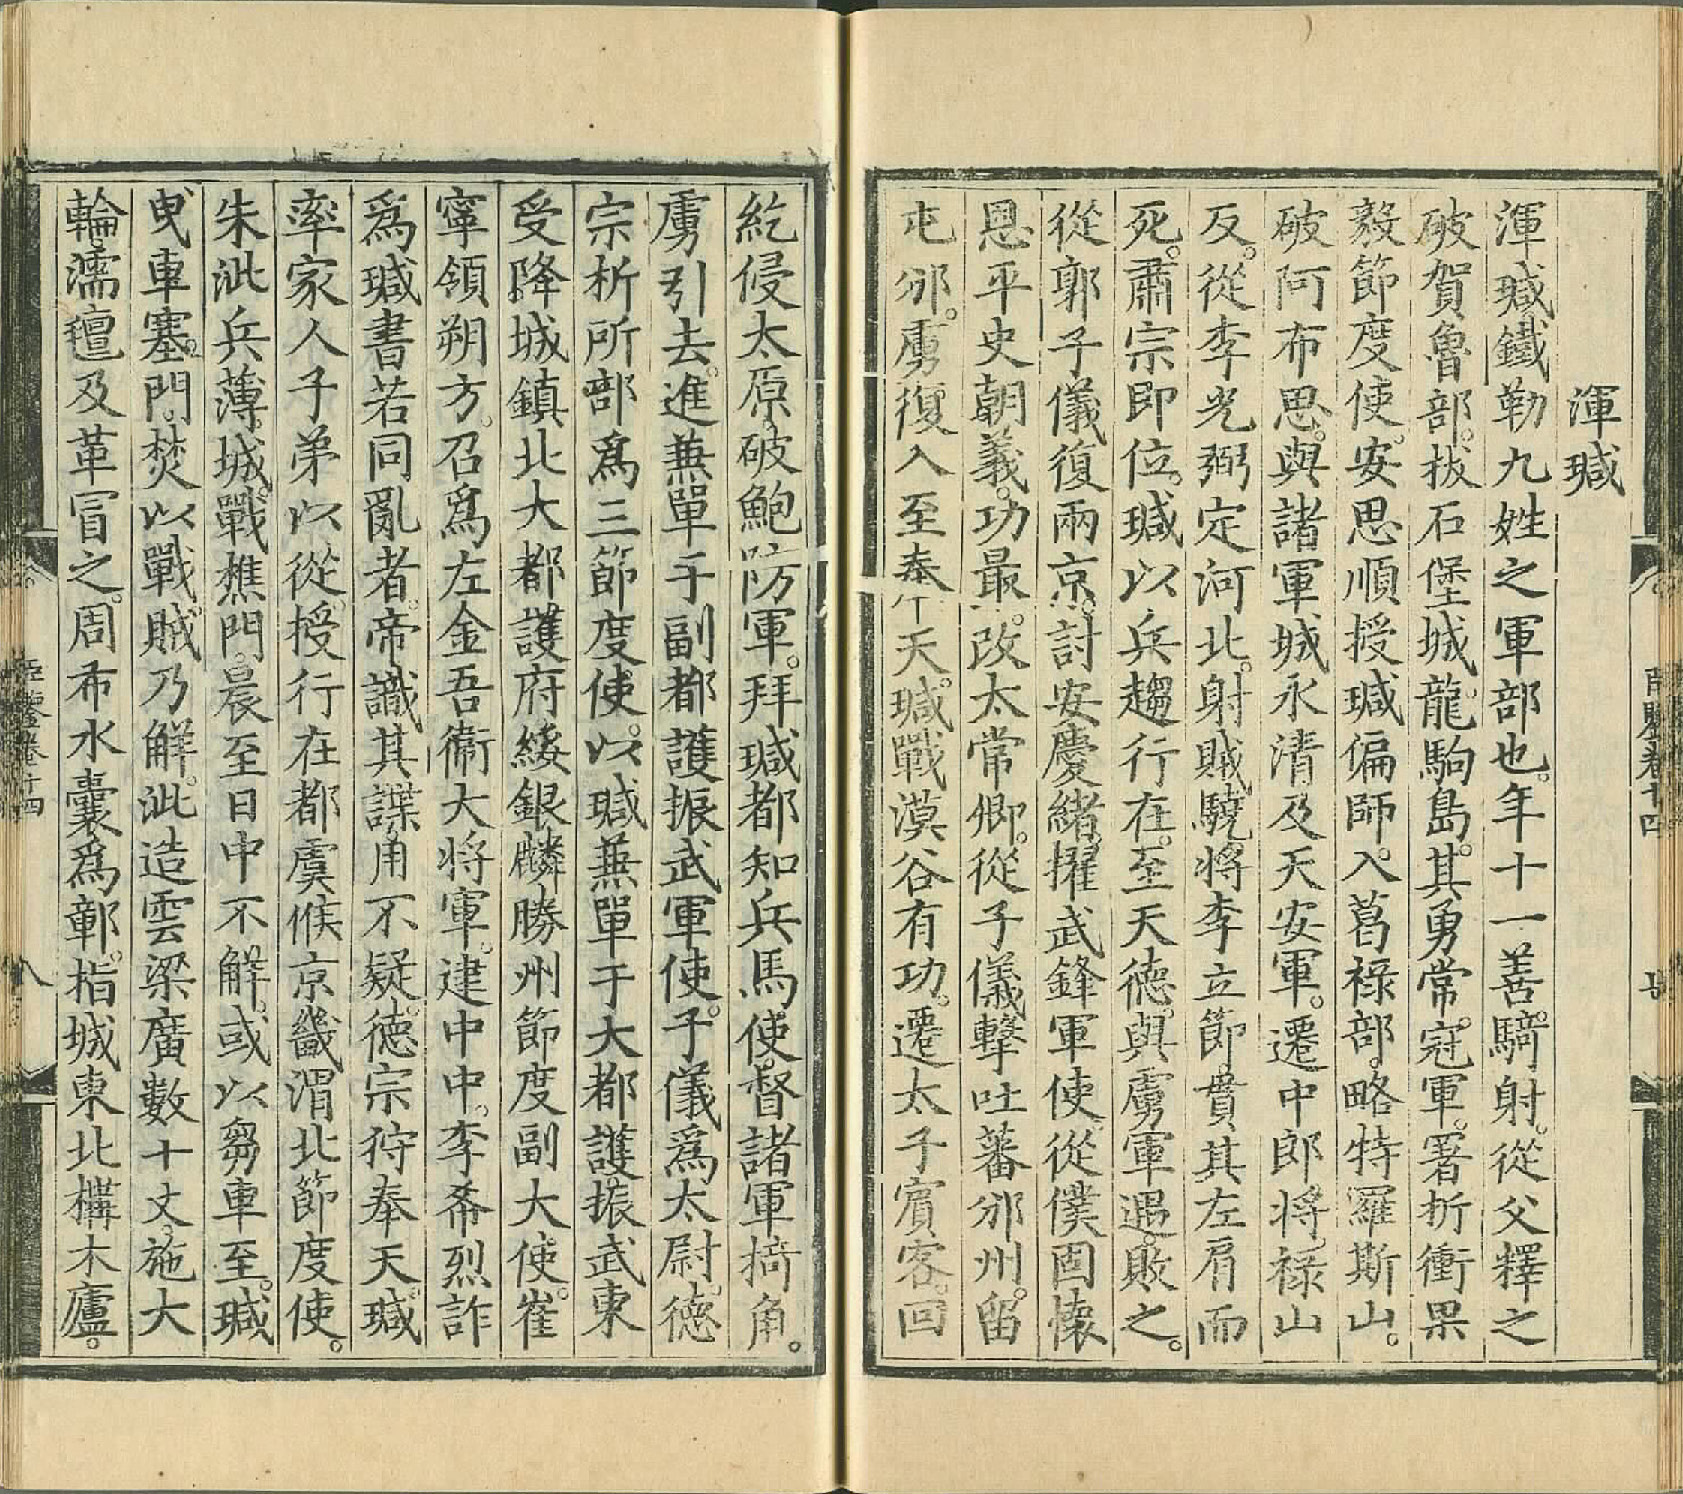 渾瑊
渾瑊鐵勒九姓之軍部也。年十一善騎射。從父釋之
破賀魯部。拔石堡城。龍駒島。其勇常冠軍。署折衝果
毅節度使。安思順授瑊偏師。入葛祿部。略特羅斯山。
破阿布思。與諸軍城永清及天安軍。遷中郎將。祿山
反。從李光弼定河北。射賊驍將李立節。貫其左肩而
死。肅宗即位。瑊以兵趨行在。至天德。與虜軍遇。敗之。
從郭子儀復兩京。討安慶緒。擢武鋒軍使。從僕固懷
恩平史朝義。功最。改太常卿。從子儀擊吐蕃邠州。留
屯邠。虜復入至奉天。瑊戰漠谷有功。遷太子賓客。回
紇侵太原。破鮑防軍。拜瑊都知兵馬使。督諸軍掎角。
虜引去。進兼單于副都護振武軍使。子儀爲太尉。德
宗析所部爲三節度使。以瑊兼單于大都護。振武東
受降。城鎮北大都護府綏銀麟勝州節度副大使。崔
寧領朔方。召爲左金吾衛大將軍。建中中。李希烈詐
爲瑊書若同亂者。帝識其諜。用不疑。德宗狩奉天。瑊
率家人子弟以從。授行在都虞候京畿渭北節度使。
朱泚兵薄城。戰樵門。晨至日中不解。或以芻車至。瑊
曳車塞門。焚以戰。賊乃解。泚造雲梁廣數十丈。施大
輪濡氊及革冒之。周布水囊爲鄣。指城東北構木廬。
臣鑒卷十四
八